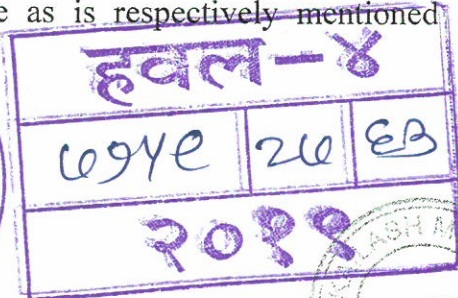 e as is respectively mentioned
हवल-४
७१५९ २७ ६३
२०११